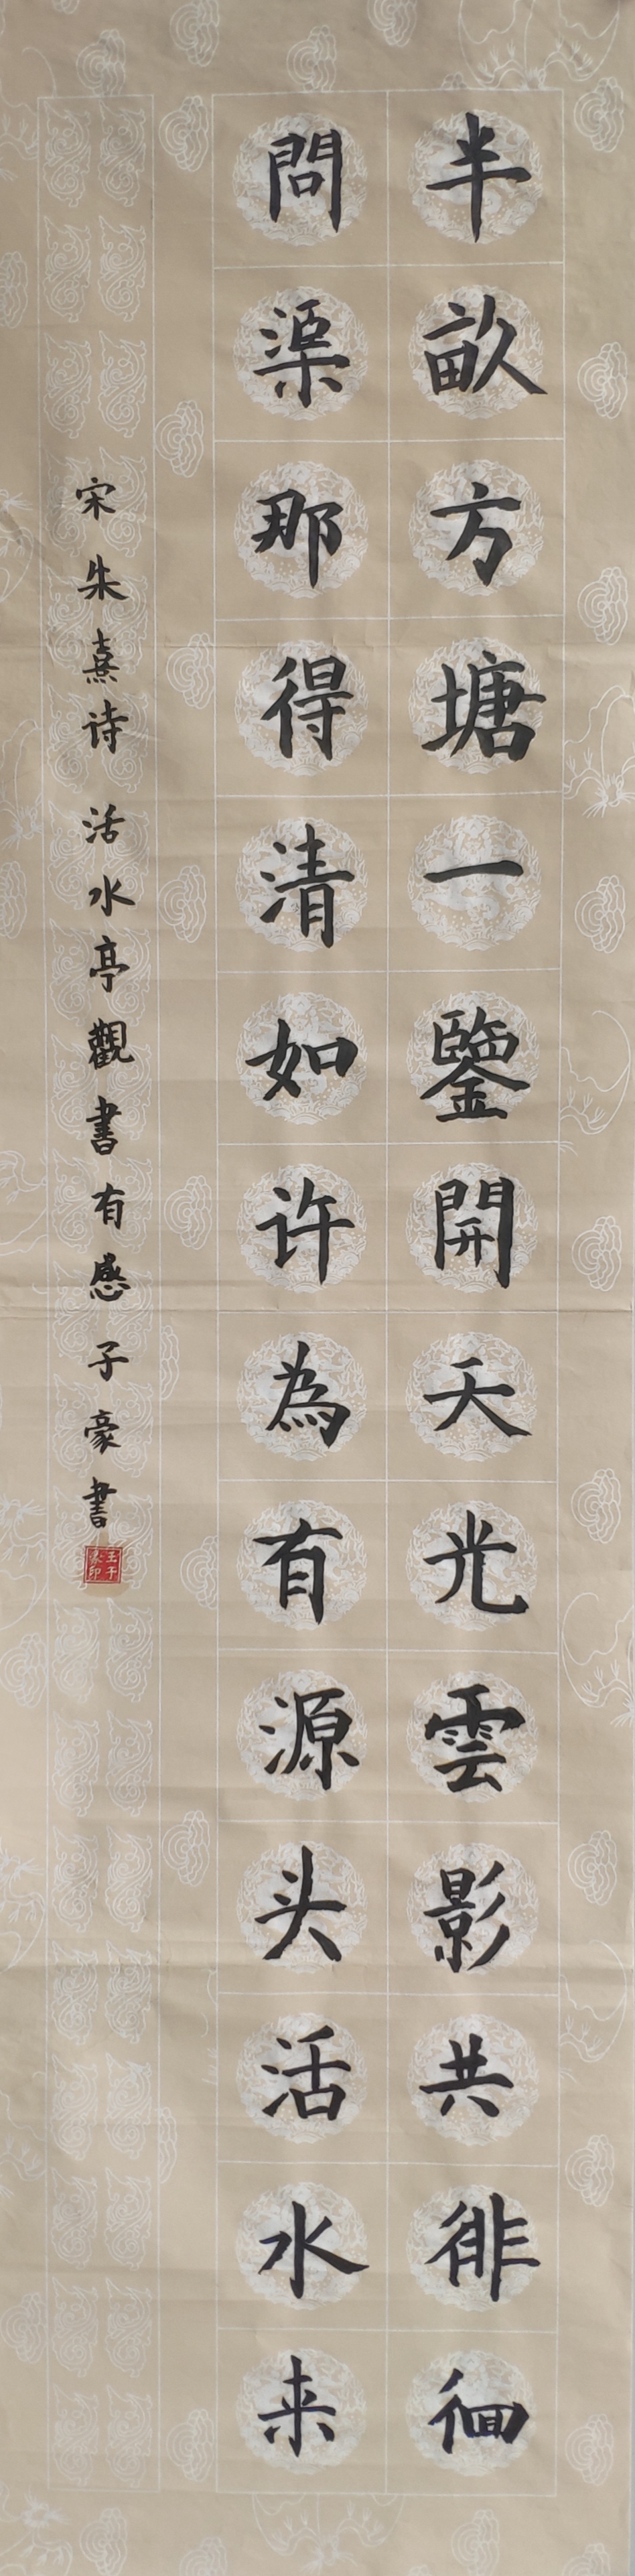 半畝方塘一鑒開天光雲影共徘徊
問渠那得清如许為有源头活水来
宋朱熹诗 活水亭觀書有感 子豪書
王子豪印